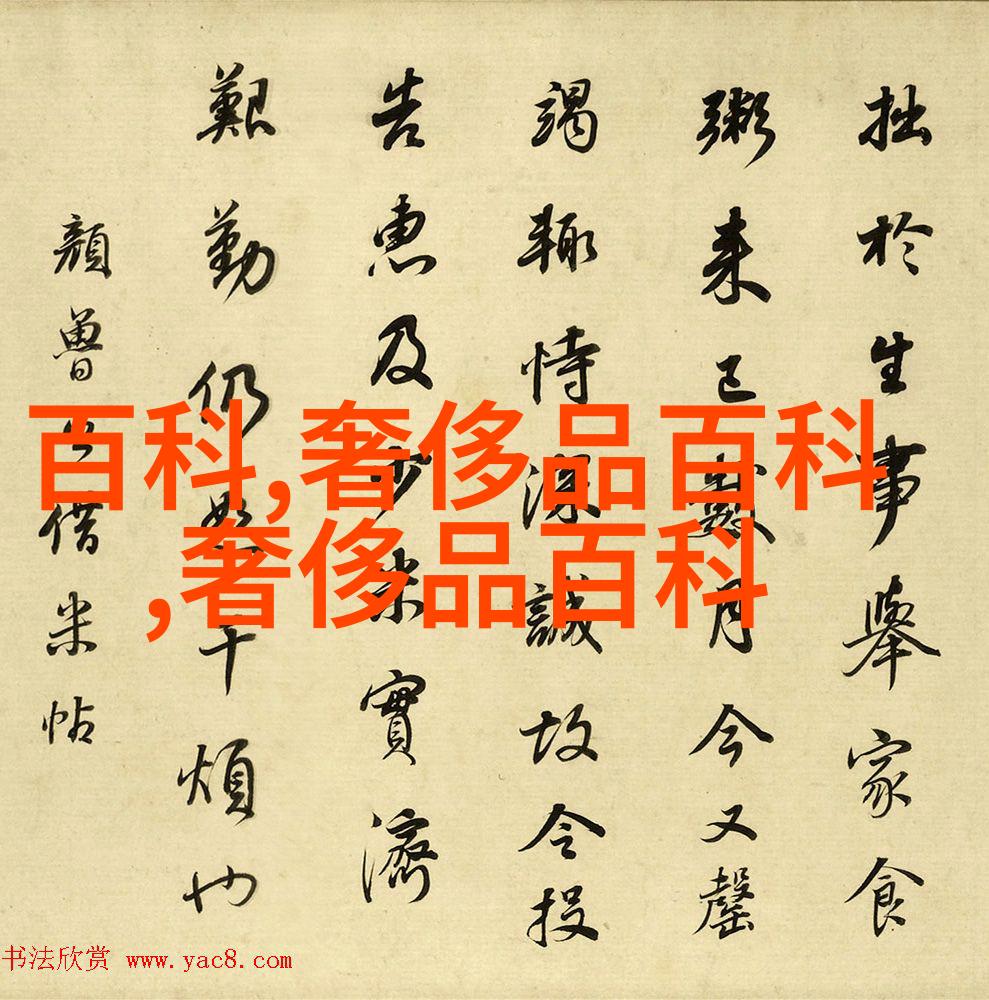 拙於生事舉家食
粥来已數月今又罄
竭輙恃深誠故令投
告惠及少米實濟
艱勤仍恕干煩也
顔魯公借米帖
百科,奢侈品百科
,奢侈品百科
书法欣赏 www.yac8.com